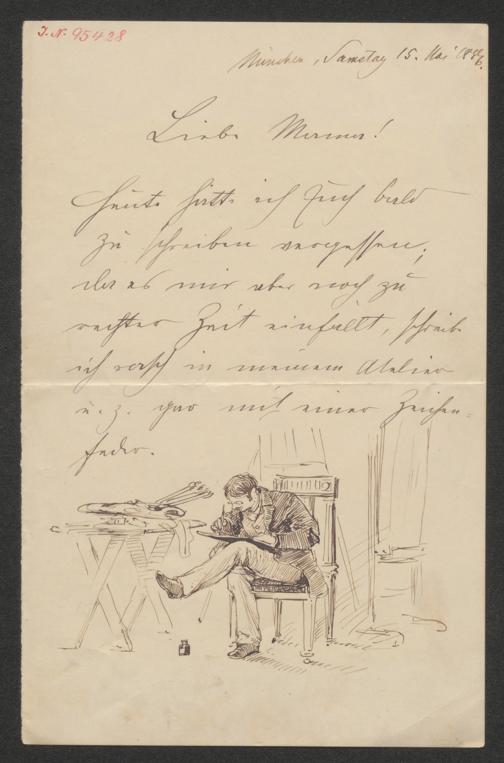 J. N. 95428
München, Samstag 15. Mai 1886.
Liebe Mama!
Heute hätte ich Euch bald
zu schreiben vergessen;
da es mir aber noch zu
rechter Zeit einfällt, schreibe
ich rasch in meinem Atelier
u. z. gar mit einer Zeichen=
feder.